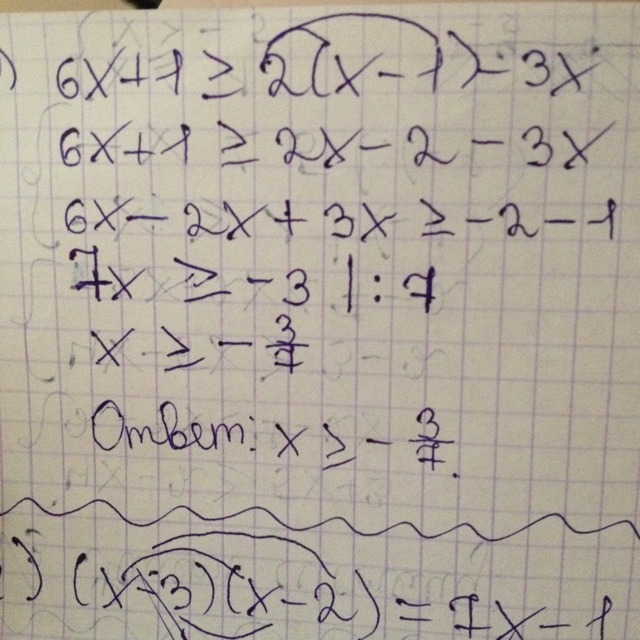 ) 6x+1 ≥ 2(x-1)-3x
6x+1 ≥ 2x-2-3x
6x-2x+3x ≥ -2-1
7x ≥ -3 |:7
x ≥ -3/7
Ответ: x ≥ -3/7.
) (x-3)(x-2)=7x-1